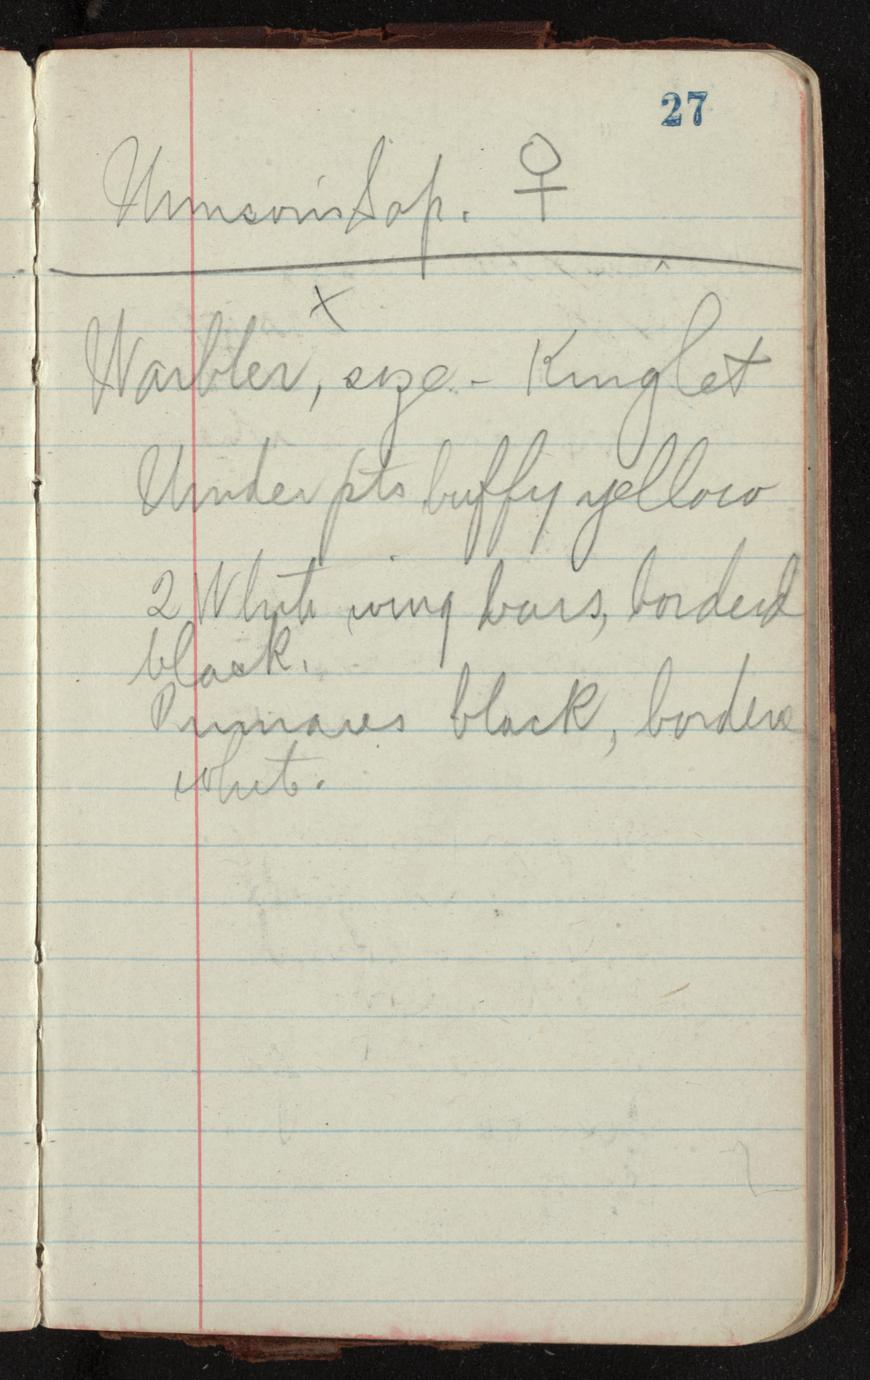 27
Sap. ♀
x
Warbler, size - Kinglet
Under pts buffy yellow
2 White wing bars, borderd
black.
Primaries black, borders
white.